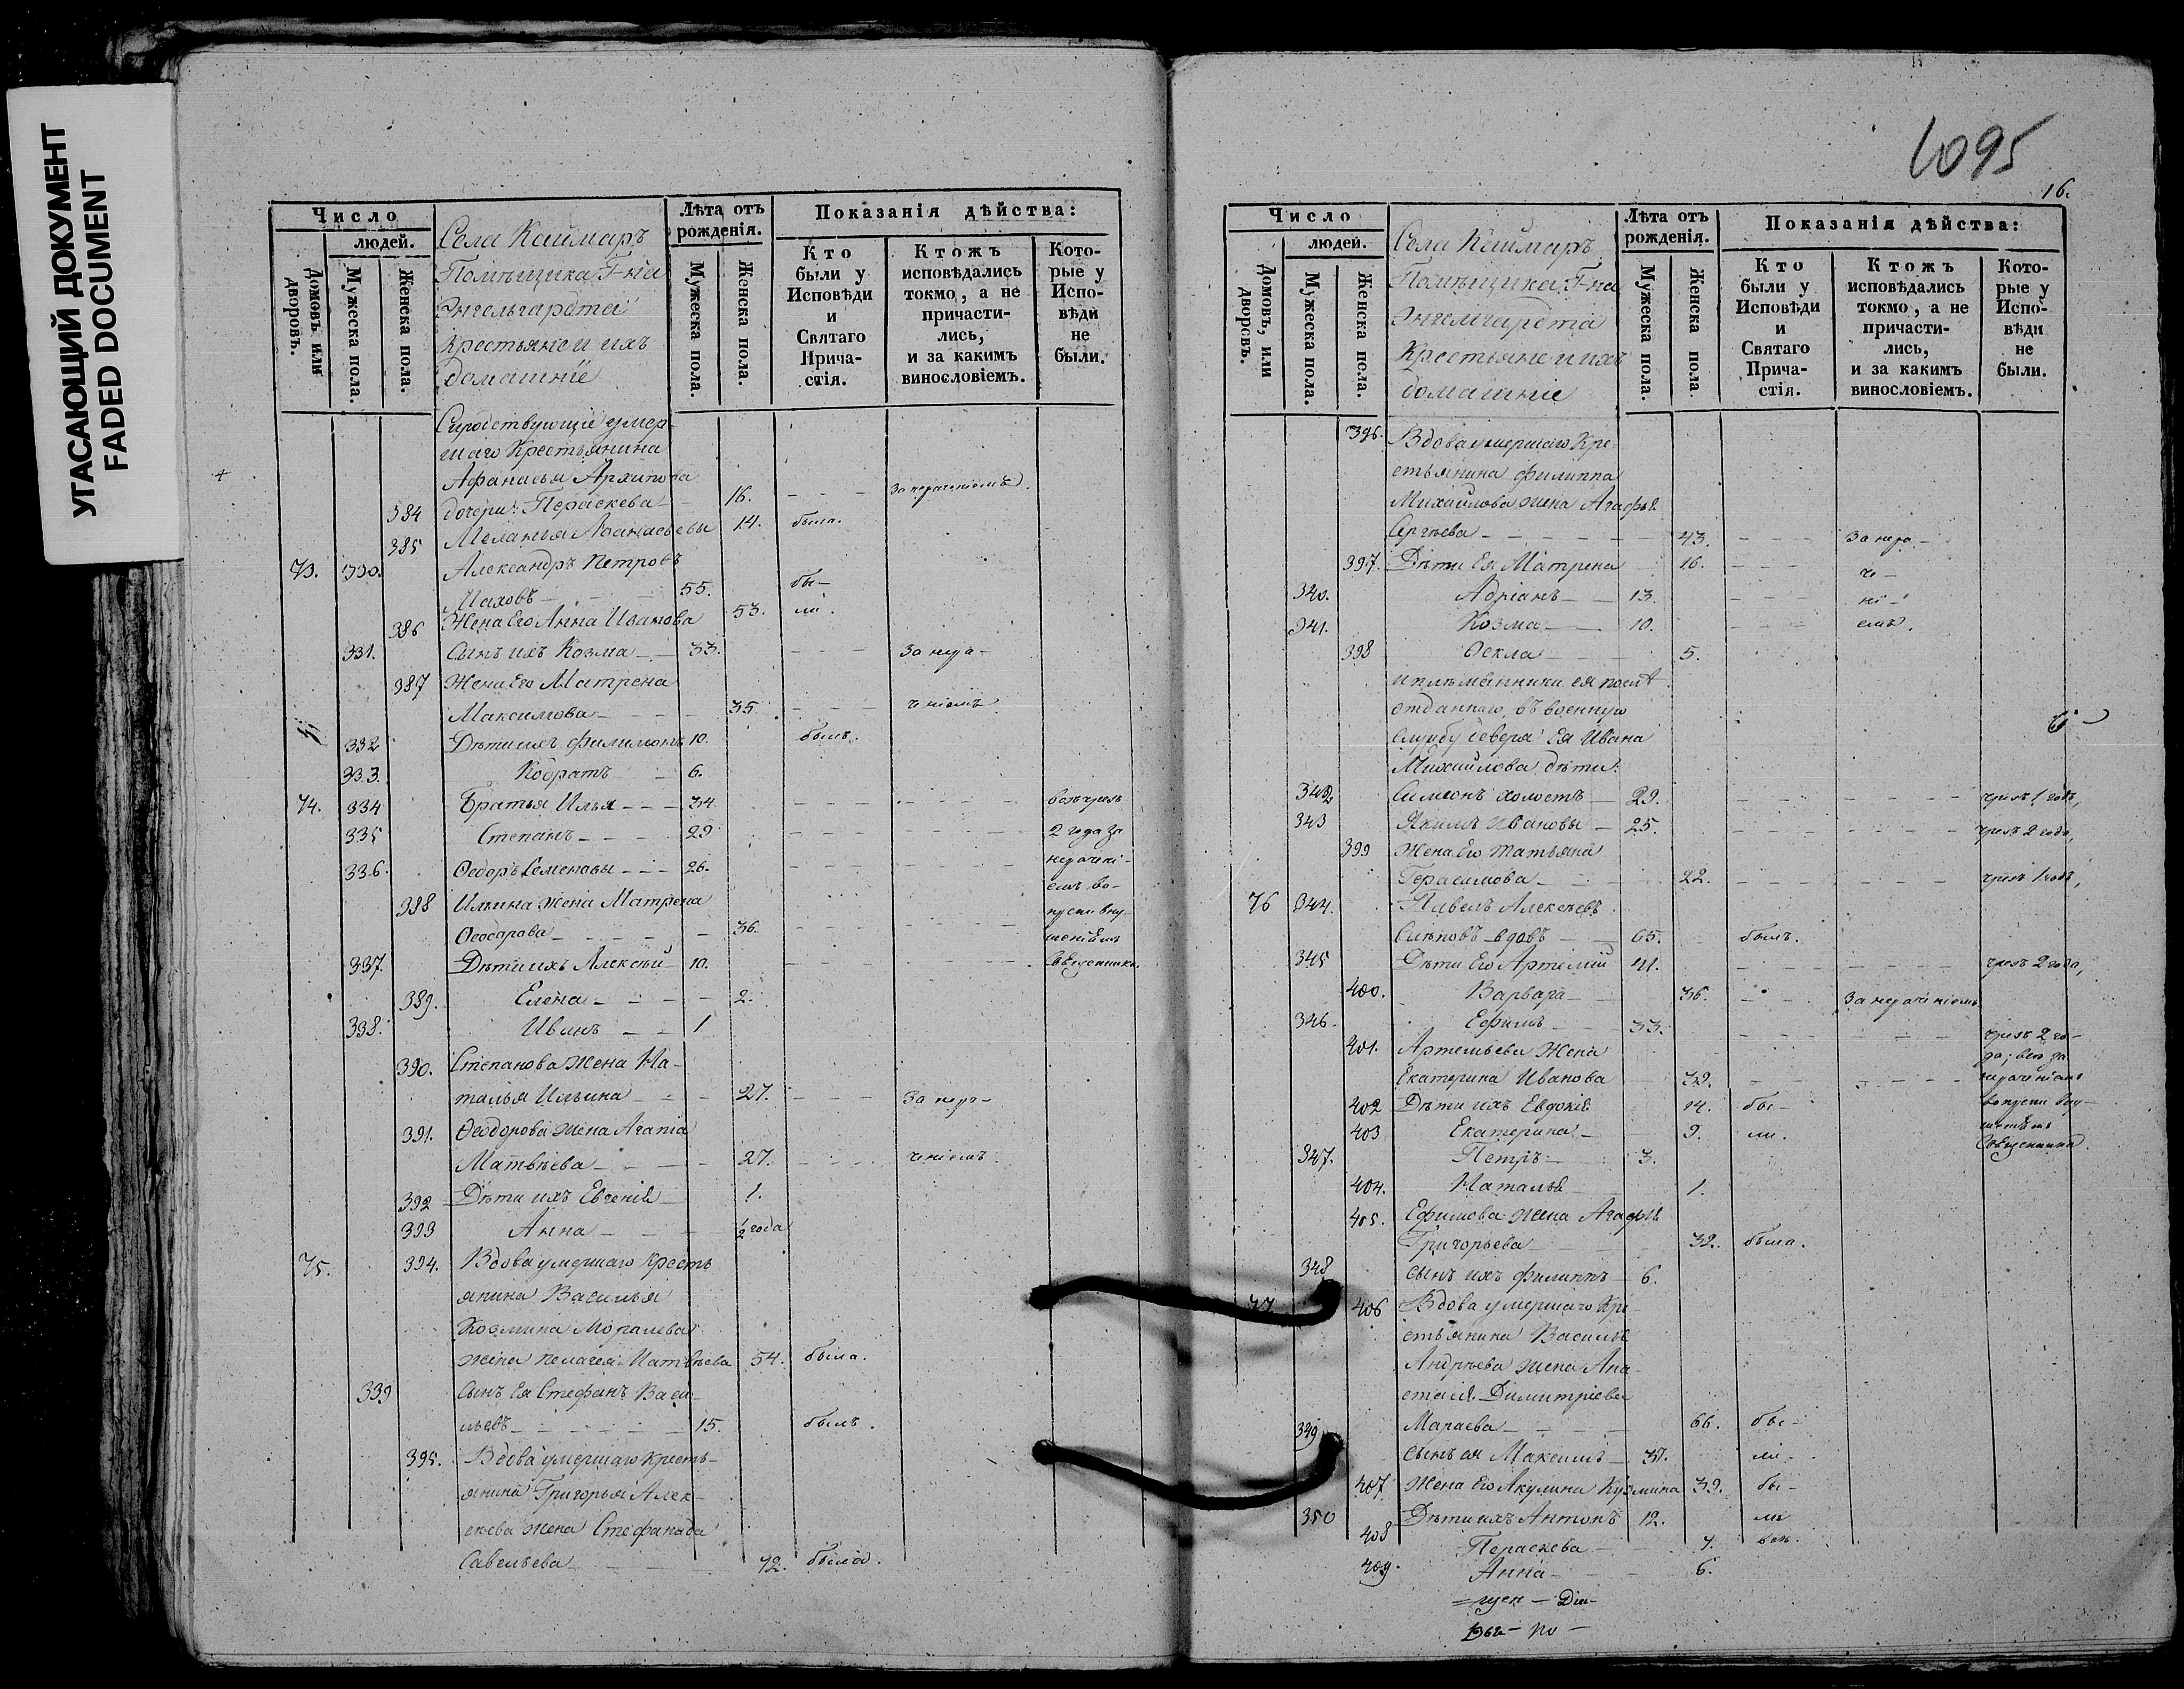 УГАСАЮЩИЙ ДОКУМЕНТ
FADED DOCUMENT
Число
людей.
Домовъ или дворовъ.
Мужеска пола.
Женска пола.
Села Каймаръ
Помѣщика Г-на
Энгельгардта
крестьяне и ихъ
домашніе
Лѣта отъ рожденія.
Мужеска пола.
Женска пола.
Показанія дѣйства:
Кто были у Исповѣди и Святаго Прича-стія.
Ктожъ исповѣдались токмо, а не причасти-лись, и за какимъ винословіемъ.
Кото-рые у Испо-вѣди не были.
Сиродствующіе умер-
шаго Крестьянина
Афанасья Архипова
384 дочери: Параскева 16. За нераченіемъ.
385 Меланья Афанасьевы 14. была.
73. 330. Александръ Петровъ
55. бы-
386 Жена Его Анна Иванова 53. ли.
331. Сынъ ихъ Козма 33. За нера-
387 Жена Его Матрена
Максимова 35. ченіемъ
332 Дѣти ихъ Филимонъ 10. былъ.
333. Кодратъ 6.
74. 334 Братья Илья 34
335 Степанъ 29 2 года за
336. Ѳедоръ Семеновы 26. нерачені-
емъ во-
388 Ильина жена Матрена
36.
337. Дѣти ихъ Алексѣй 10. Священника.
389. Елена 2.
338. Иванъ 1
390. Степанова Жена На-
талья Ильина 27. За нера-
391. Ѳеодорова жена Агапіа
Матвѣева 27. ченіемъ.
392 Дѣти ихъ Евгеніѧ 1.
393 Анна 1/2 года
75. 394. Вдова умершаго Кресть
янина Василья
Козмина
жена Пелагея Матвѣева 54. была.
339 Сынъ Ея Стефанъ Васи-
льевъ 15. былъ.
395. Вдова умершаго Кресть-
янина Григорья Алек-
сѣева жена Стефанида
Савельева 72. была.
1095
16.
Число
людей.
Домовъ, или дворовъ.
Мужеска пола.
Женска пола.
Села Каймаръ
Помѣщика Г-на
Энгельгардта
Крестьяне и ихъ
домашніе
Лѣта отъ рожденія.
Мужеска пола.
Женска пола
Показанія дѣйства:
Кто были у Исповѣди и Святаго Прича-стія.
Ктожъ исповѣдались токмо, а не причасти-лись, и за какимъ винословіемъ.
Кото-рые у Испо-вѣди не были.
396. Вдова умершаго Кре-
стьянина Филиппа
Михайлова жена Агафьѧ
Сергѣева 43. За нера-
397. Дѣти Ея Матрена 16. че-
340. Адріанъ 13. ні-
341. Козма 10. емъ.
398 Ѳекла 5.
и племянники ея послѣ
отданнаго въ военную
службу деверя Ея Ивана
Михайлова дѣти:
342 Симеонъ холостъ 29. чрезъ 1 годъ,
343 Якимъ Ивановы 25. чрезъ 2 года,
399 Жена Его Татьяна
Герасимова 22. чрезъ 1 годъ,
76 344. Павелъ Алексѣевъ
вдовъ 65. былъ.
345 Дѣти Его Артемій 41. чрезъ 2 года,
400. Варвара 36. За нераченіемъ
346 Ефимъ 33. чрезъ 2 го-
401. Артемьева Жена да; всѣ за
Екатерина Иванова 39. нераченіемъ
402 Дѣти ихъ Евдокіѧ 14. бы-
403 Екатерина 9. ли. Священника
347. Петръ 3.
404. Натальѧ 1.
405. Ефимова жена Агафьѧ
Григорьева 32. была.
348 сынъ ихъ Филиппъ 6.
77 406 Вдова умершаго Кре
стьянина Васильѧ
Андрѣева жена Ана
стасіѧ Димитріева
Мараева 66. бы-
349 сынъ ея Максимъ 37. ли-
407 Жена Его Акулина Кузмина 39. бы-
350 Дѣти ихъ Антонъ 12. ли
408 Параскева 7.
409. Анна 6.